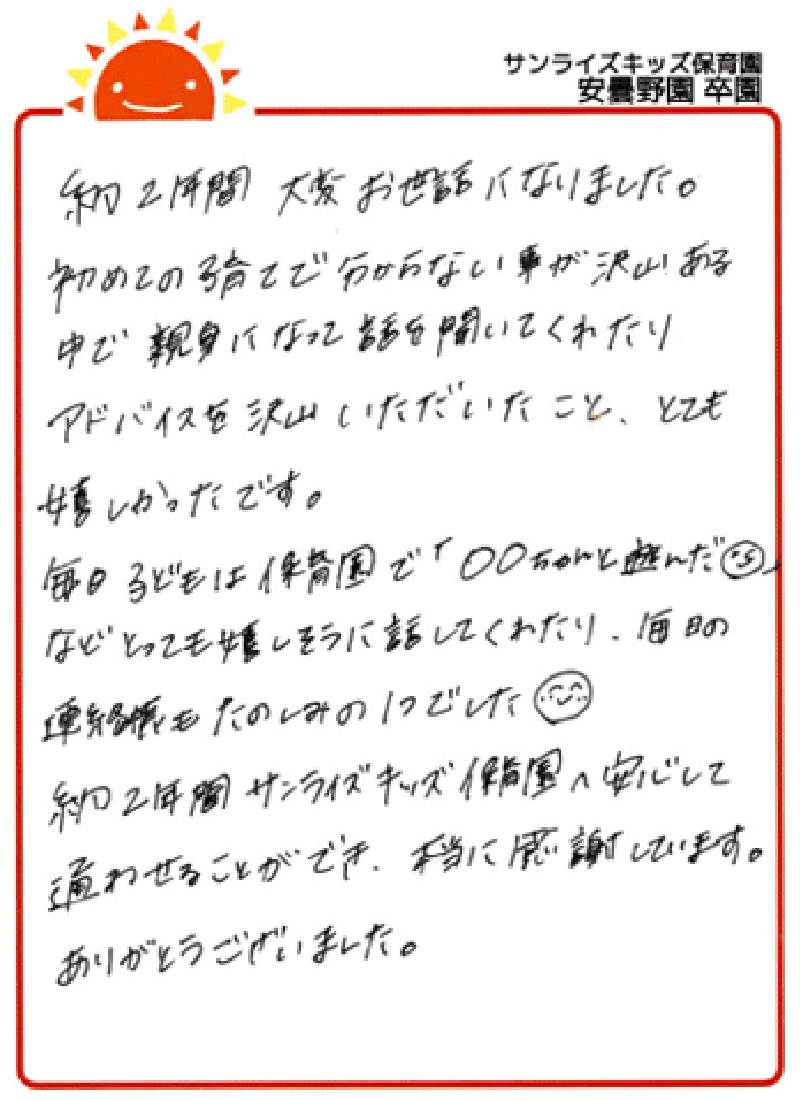 サンライズキッズ保育園
安曇野園 卒園
約2年間 大変お世話になりました。
初めての子育てで分からない事が沢山ある
中で親身になって話を聞いてくれたり
アドバイスを沢山いただいたこと、とても
嬉しかったです。
毎日子どもは保育園で「○○ちゃんと遊んだ☺」
などとっても嬉しそうに話してくれたり、毎日の
連絡帳もたのしみの1つでした☺
約2年間サンライズキッズ保育園へ安心して
通わせることができ、本当に感謝しています。
ありがとうございました。